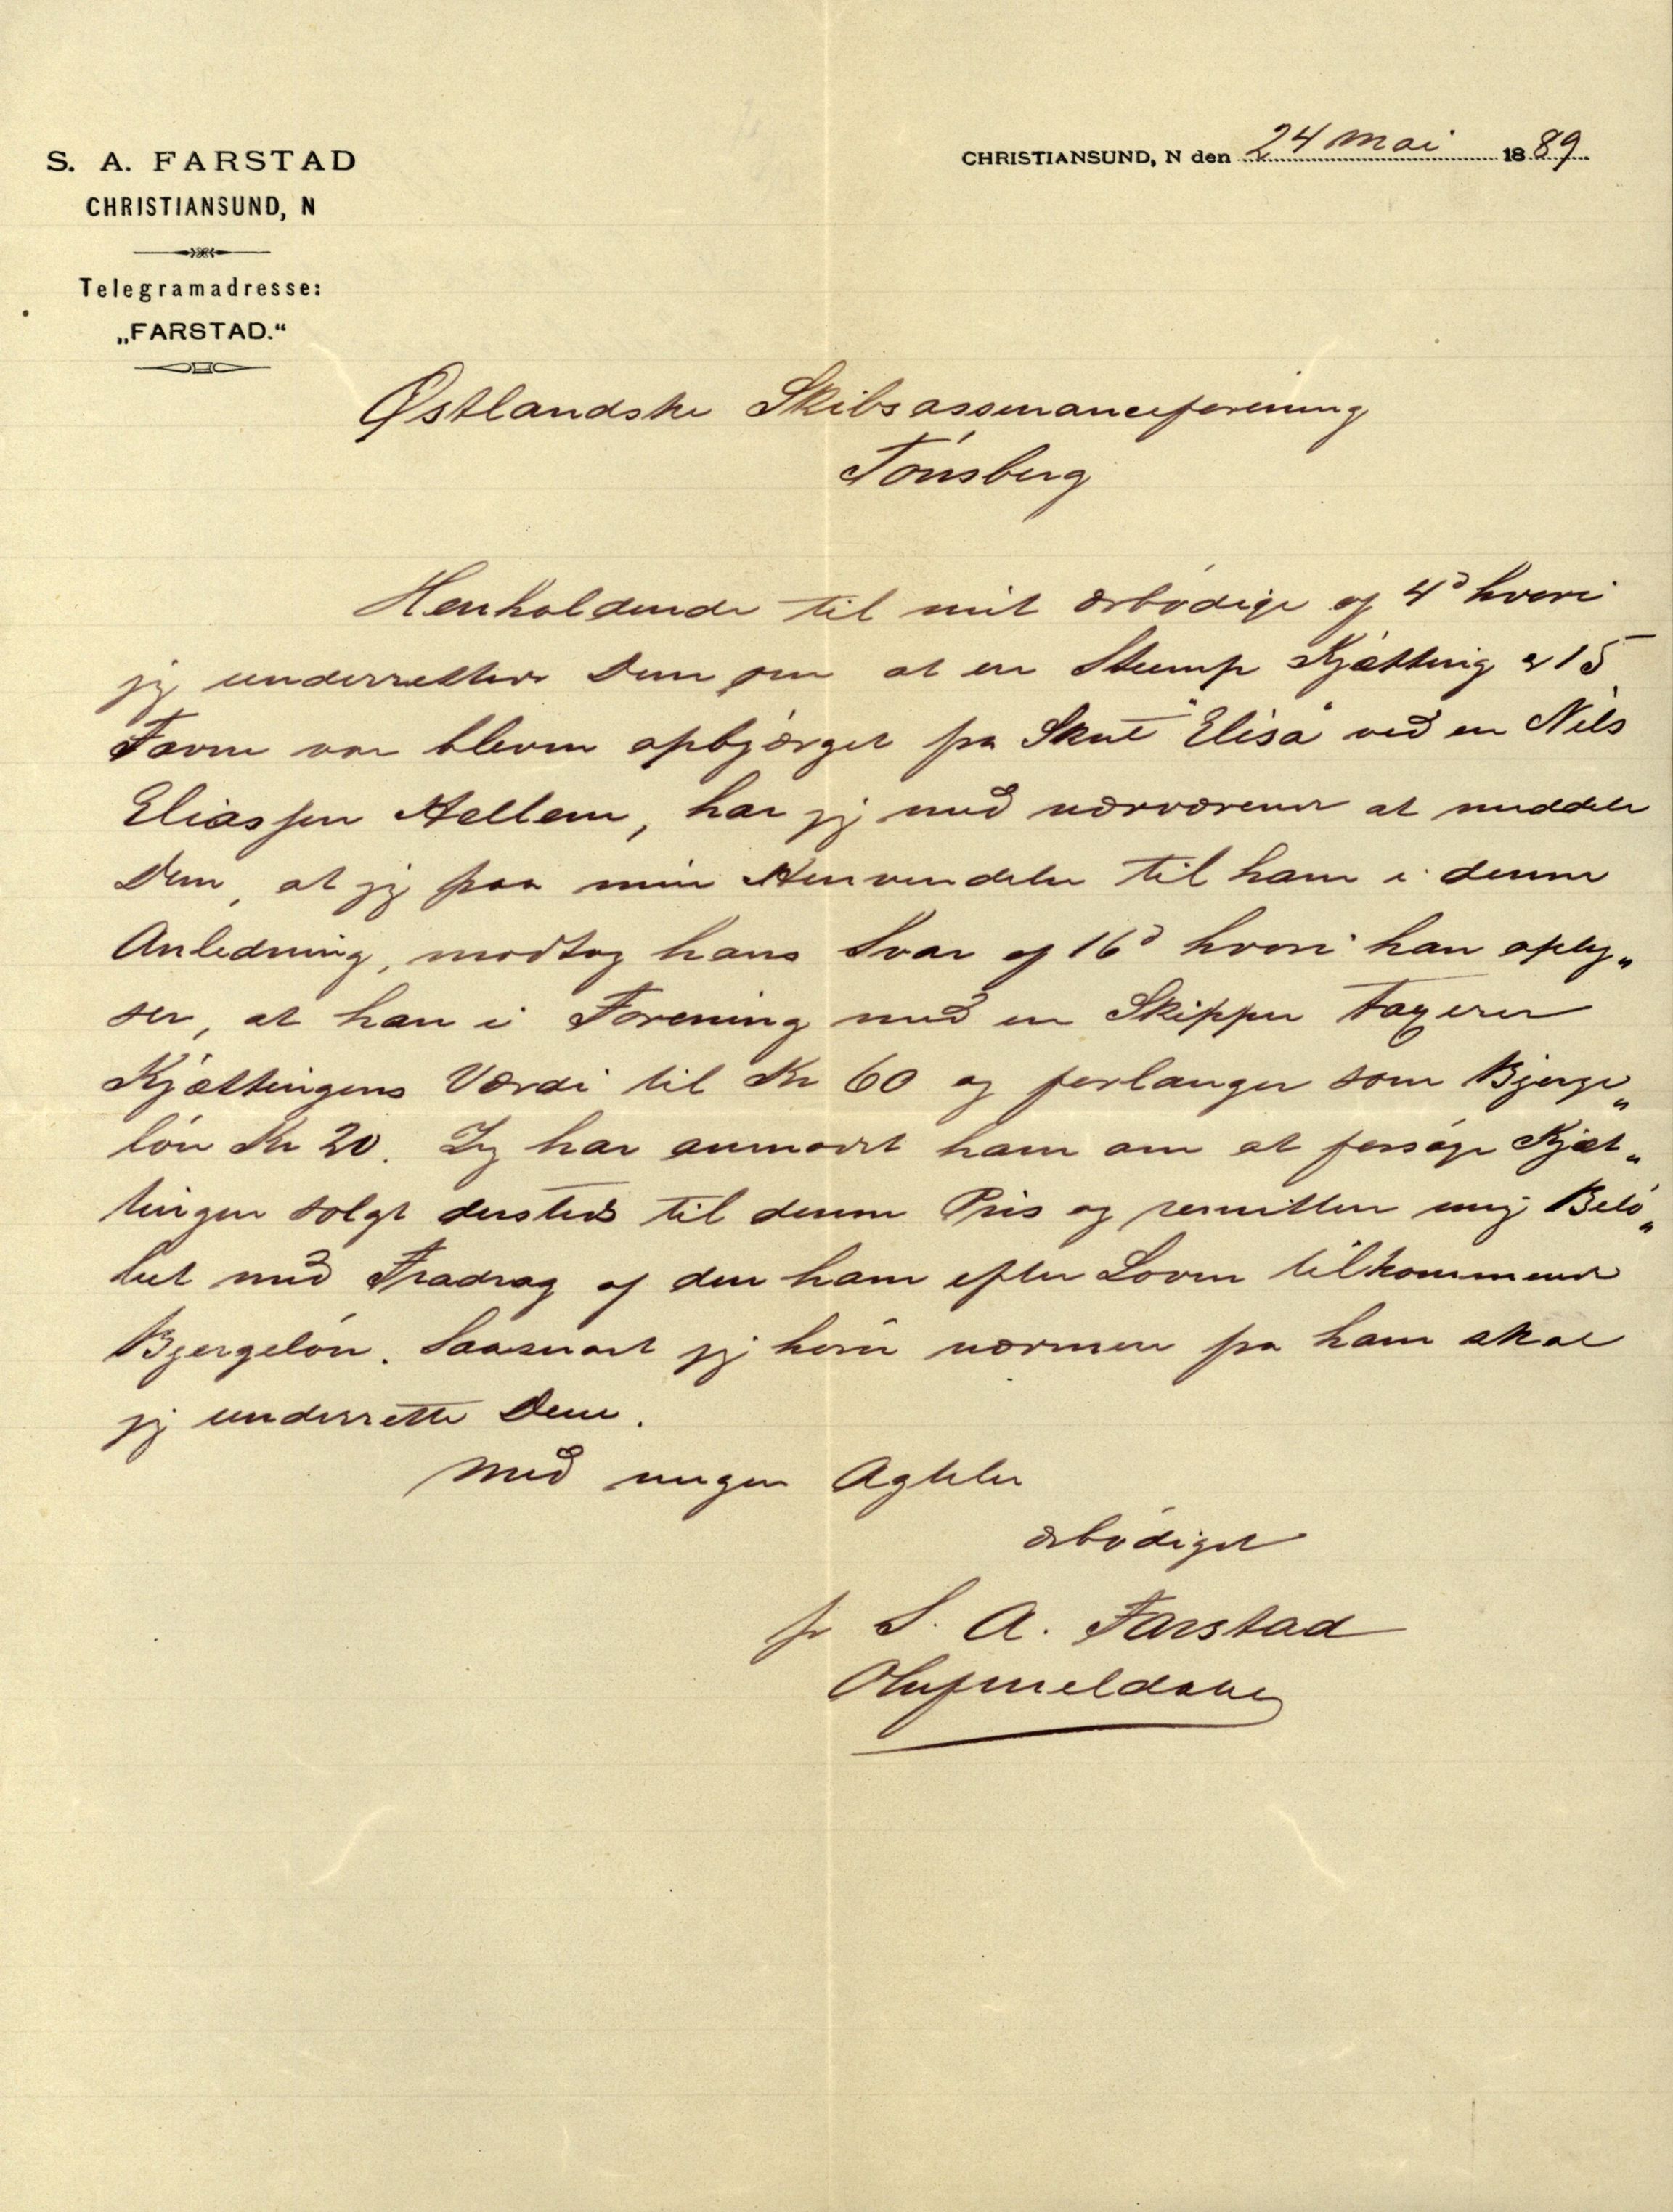 S. A. FARSTAD
CHRISTIANSUND, N
Telegramadresse:
„FARSTAD.“
CHRISTIANSUND, N den 24 Mai 1889.
Østlandske Skibsassuranceforening
Tónsberg
Henholdende til mit ærbódige af 4d hvori
jeg underretter Dem om at en Stump Kjætting a 15
Favne var bleven opbjærget fra Skut "Elisa" ved en Nils
Eliassen Hellem, har jeg med nærværende at meddele
Dem, at jeg paa min Henvendelse til ham i denne
Anledning, modtog hans Svar af 16d hvori han oply„
ser, at han i Forening med en Skipper taxerer
Kjættingens Værdi til Kr 60 og forlanger som Bjerge„
lón Kr 20. Jeg har anmodet ham om at forsóge Kjæt„
tingen solgt dersteds til denne Pris og remittere mig Beló„
bet med Fradrag af den ham efter Loven tilkommende
Bjergelón. Saasnart jeg hører nærmere fra ham skal
jeg underrette Dem.
Med megen Agtelse
ærbódigst
pr S. A. Farstad